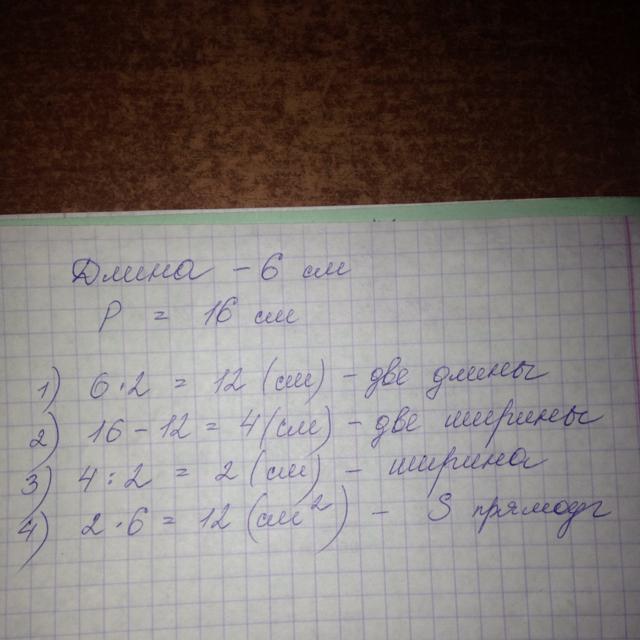 Длина - 6 см
P = 16 см
1) 6·2 = 12 (см) - две длины
2) 16 - 12 = 4 (см) - две ширины
3) 4 : 2 = 2 (см) - ширина
4) 2·6 = 12 (см²) - S прямоуг